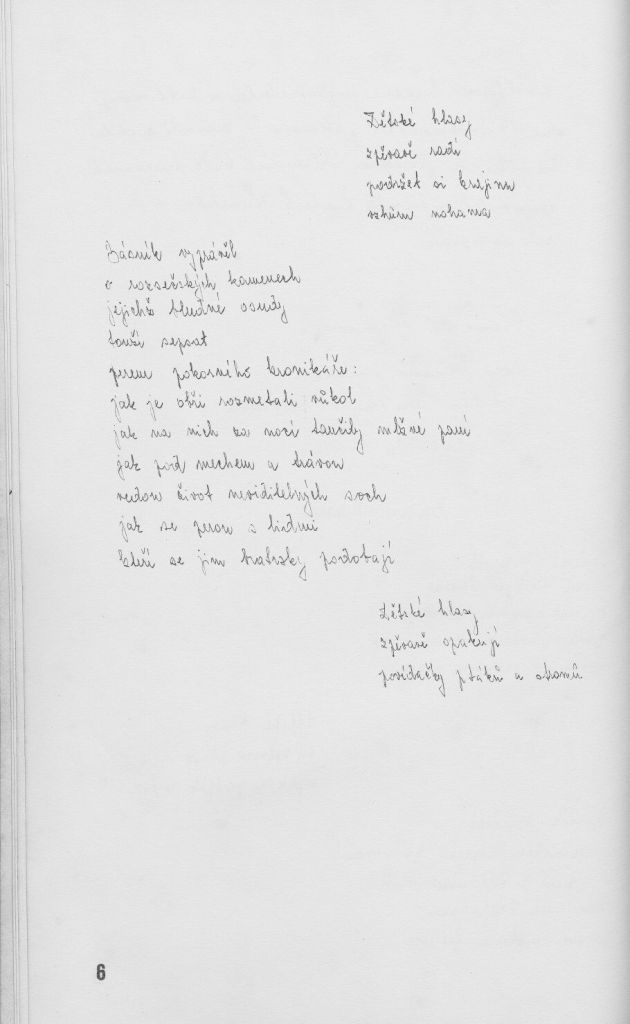 Dětské hlasy
zpěvavě radí
podržet si krajinu
vzhůru nohama
Básník vyprávěl
o rozsečských kamenech
jejichž bludné osudy
touží sepsat
perem pokorného kronikáře:
jak je obři rozmetali vůkol
jak na nich za nocí tančily mlžné paní
jak pod mechem a trávou
vedou život neviditelných soch
jak se perou s lidmi
kteří se jim bratrsky podobají
Dětské hlasy
zpěvavě opakují
povídačky ptáků a stromů
6